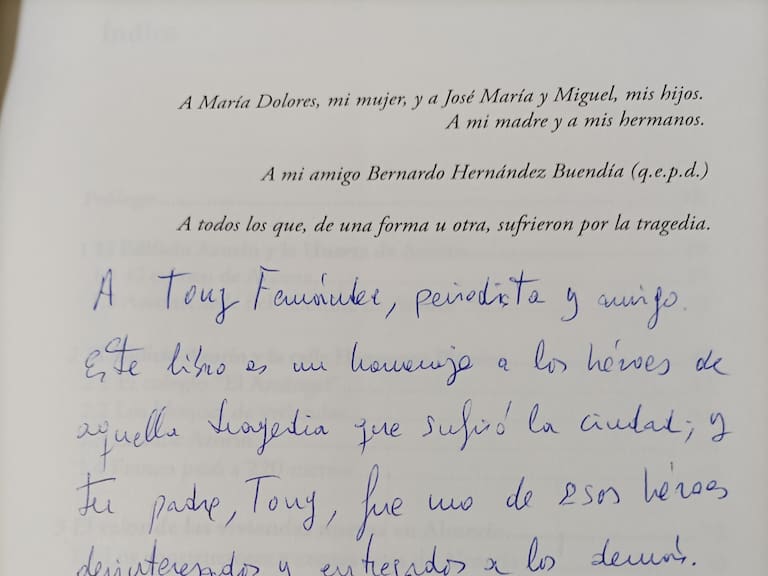 Índice
A María Dolores, mi mujer, y a José María y Miguel, mis hijos.
A mi madre y a mis hermanos.
A mi amigo Bernardo Hernández Buendía (q.e.p.d.)
A todos los que, de una forma u otra, sufrieron por la tragedia.
A Tony Fernández, periodista y amigo.
Este libro es un homenaje a los héroes de
aquella tragedia que sufrió la ciudad; y
tu padre, Tony, fue uno de esos héroes
desinteresados y entregados a los demás.